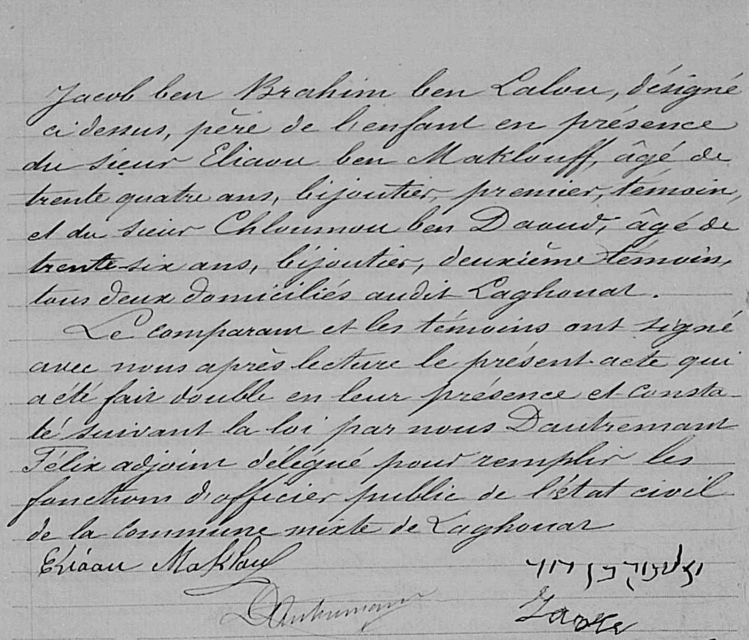 Jacob ben Brahim ben Lalou, désigné
ci dessus, père de l'enfant en présence
du sieur Eliaou ben Maklouff, âgé de
trente quatre ans, bijoutier, premier, témoin,
et du sieur Chloumou ben Daoud, âgé de
trente-six ans, bijoutier, deuxième témoin,
tous deux domiciliés audit Laghouat.
Le comparant et les témoins ont signé
avec nous après lecture le présent acte qui
a été fait double en leur présence et consta-
té suivant la loi par nous Dautremant
Félix adjoint délégué pour remplir les
fonctions d'officier public de l'état civil
de la commune mixte de Laghouat
Eliaou Maklouf